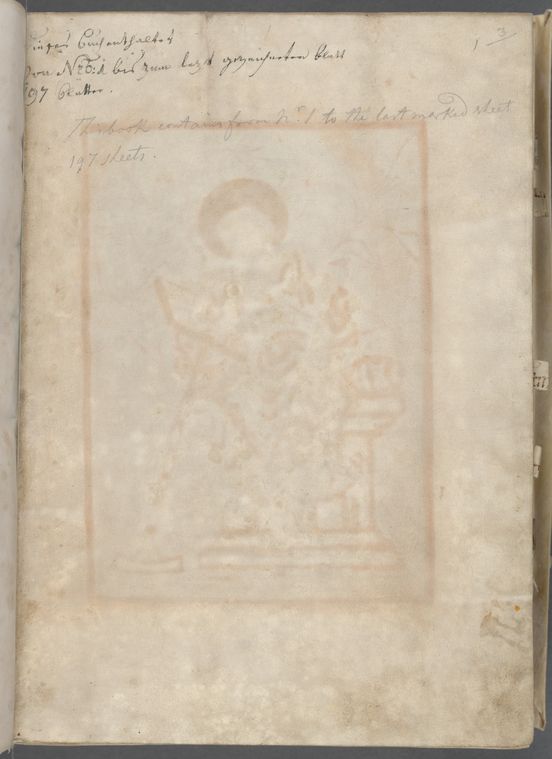 1 3
dieses Buch enthaltet
von Nro: 1 bis zum lezt gezeichneten blatt
197 blatter.
This book contains form No. 1 to the last marked sheet
197 sheets.